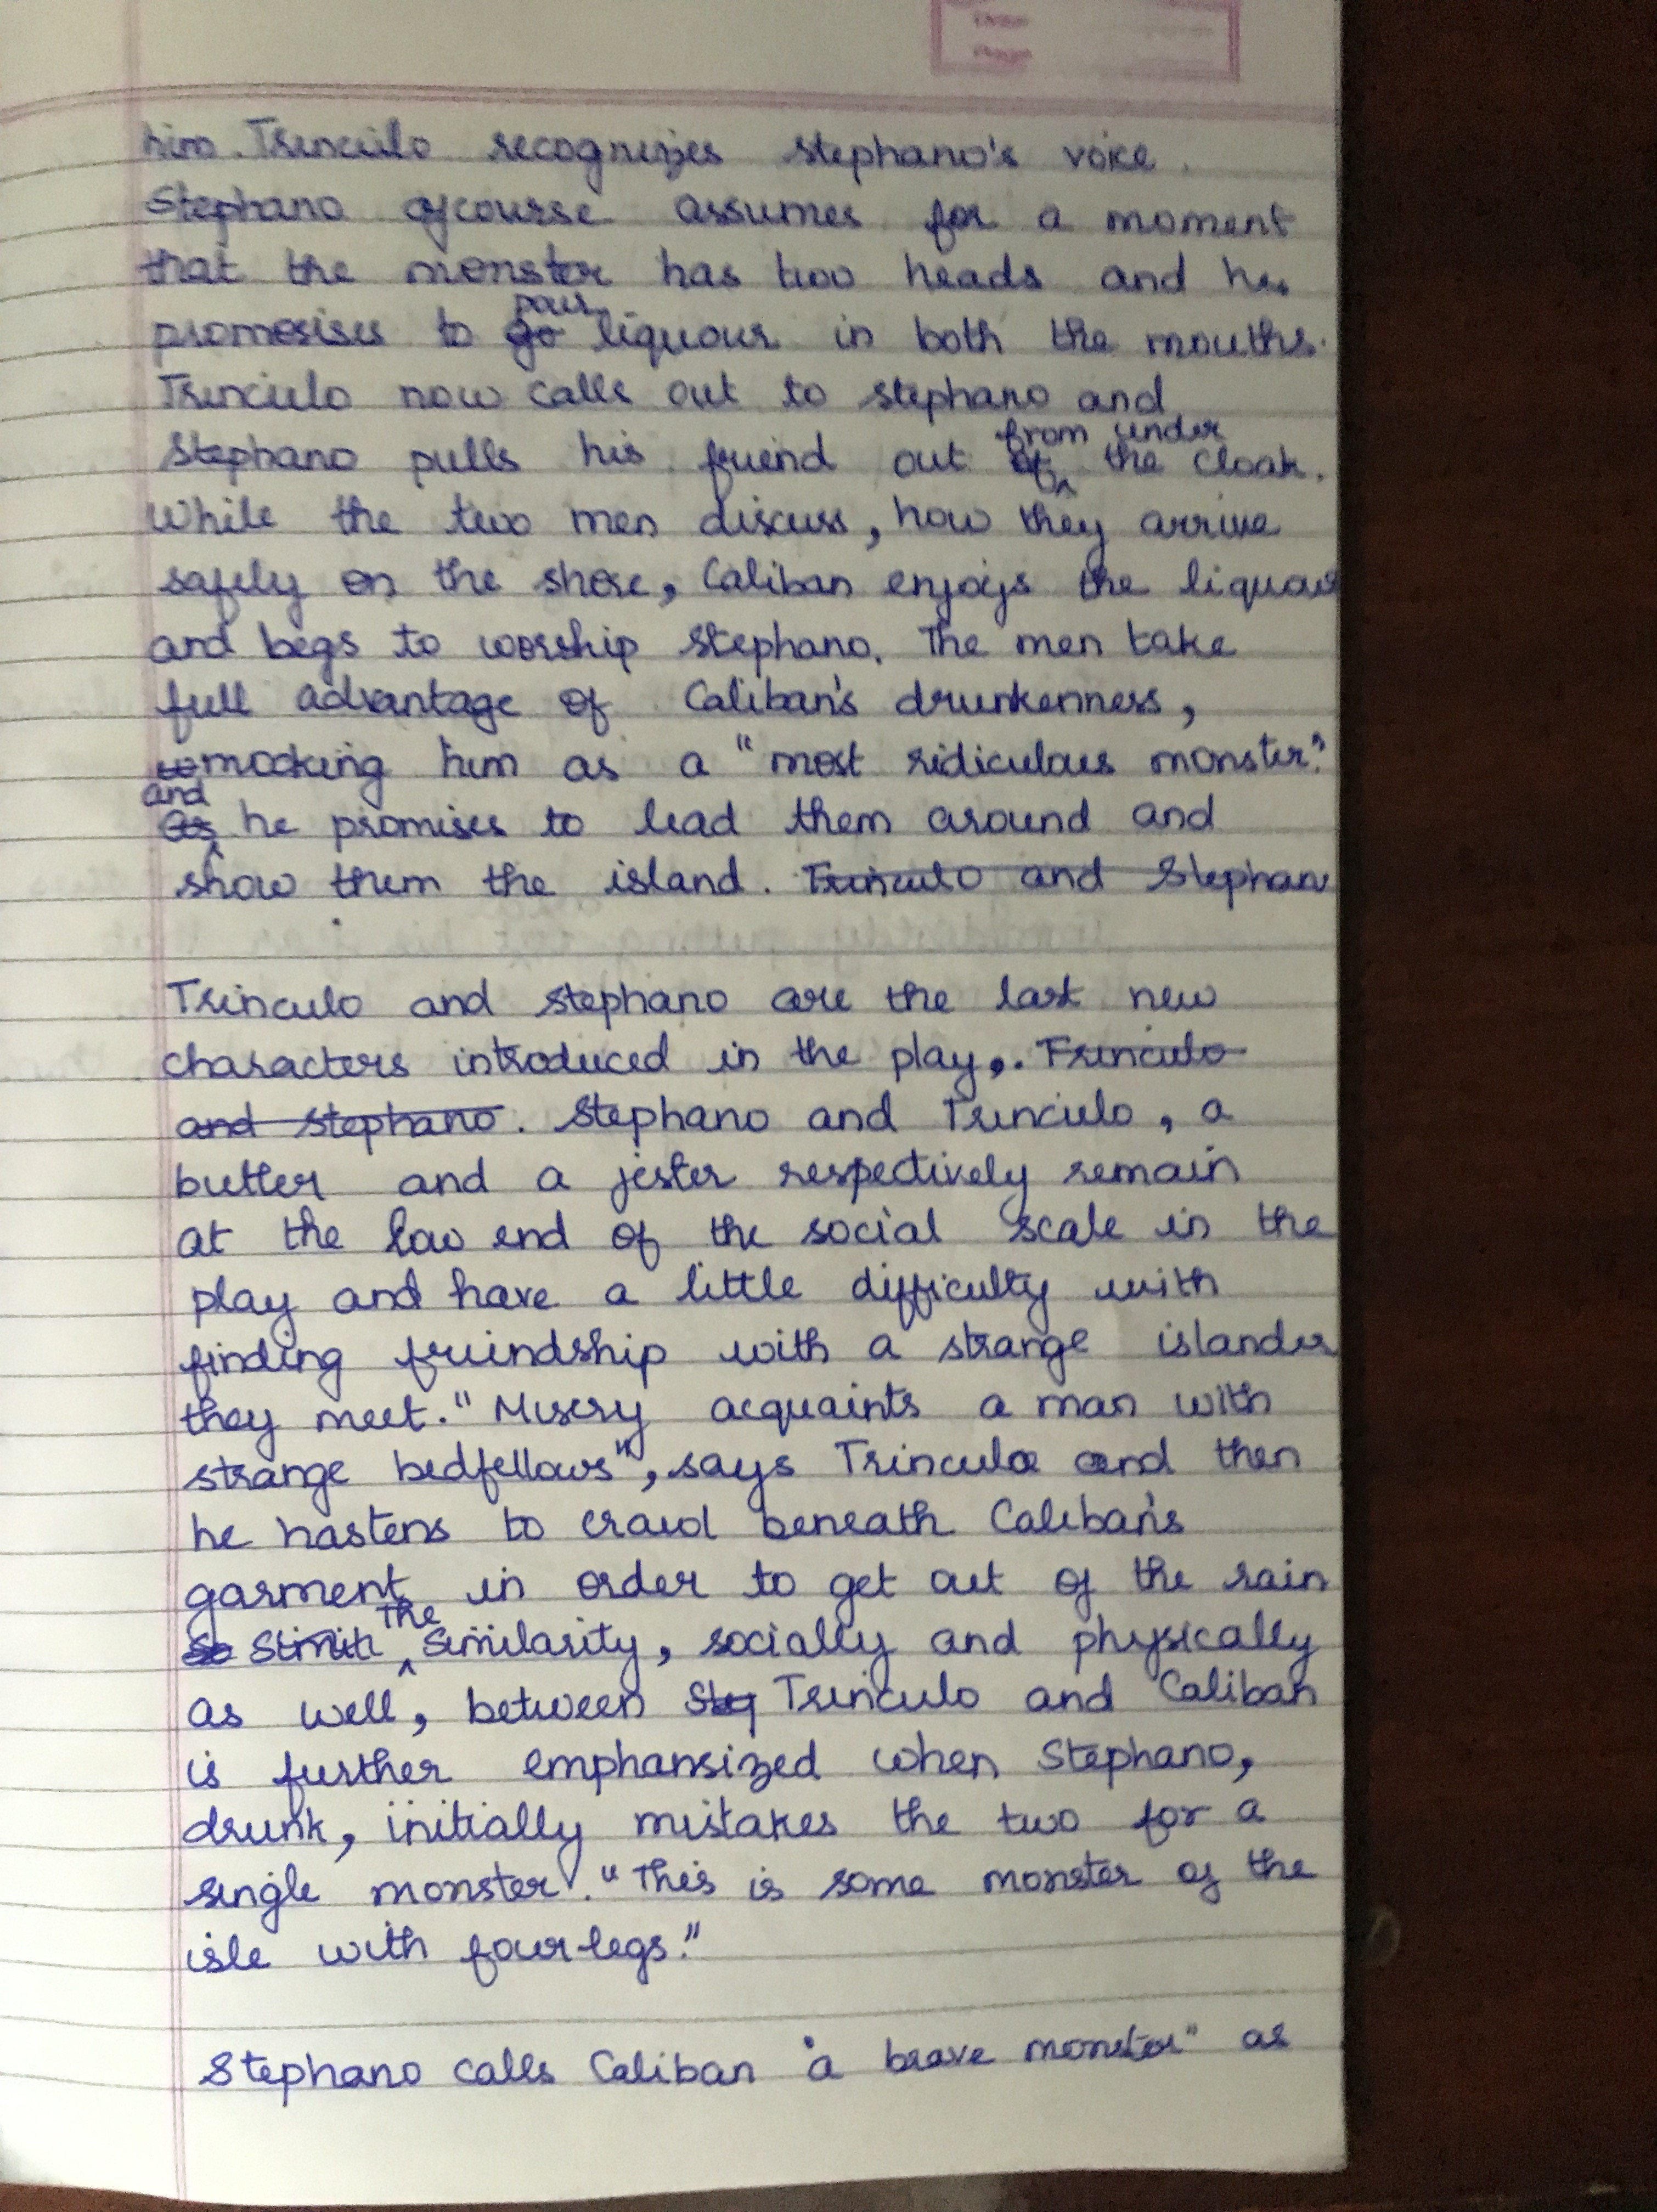 Date
Page
him. Trinculo recognizes Stephano's voice.
Stephano ofcourse assumes for a moment
that the monster has two heads and he
pour
promosises to go liquour in both the mouths.
Trinculo now calls out to stephano and
from under
Stephano pulls his friend out of the cloak.
While the two men discuss, how they arrive
safely on the shore, Caliban enjoys the liquour
and begs to worship Stephano. The men take
full advantage of Caliban's drunkenness,
to mocking him as a "most ridiculous monster."
and
As he promises to lead them around and
show them the island. Trinculo and Stephan
Trinculo and stephano are the last new
characters introduced in the play,. Trinculo
and Stephano. Stephano and Trinculo, a
buttler and a jester respectively remain
at the low end of the social scale in the
play and have a little difficulty with
finding friendship with a strange islander
they meet. "Misery acquaints a man with
strange bedfellows", says Trinculo and then
he hastens to crawl beneath Caliban's
garment in order to get out of the rain
The
So Simili Similarity, socially and physically
as well, between Step Trinculo and Caliban
is further emphansized when Stephano,
drunk, initially mistakes the two for a
single monster. "This is some monster of the
isle with four-legs."
Stephano calls Caliban "a brave monster" as